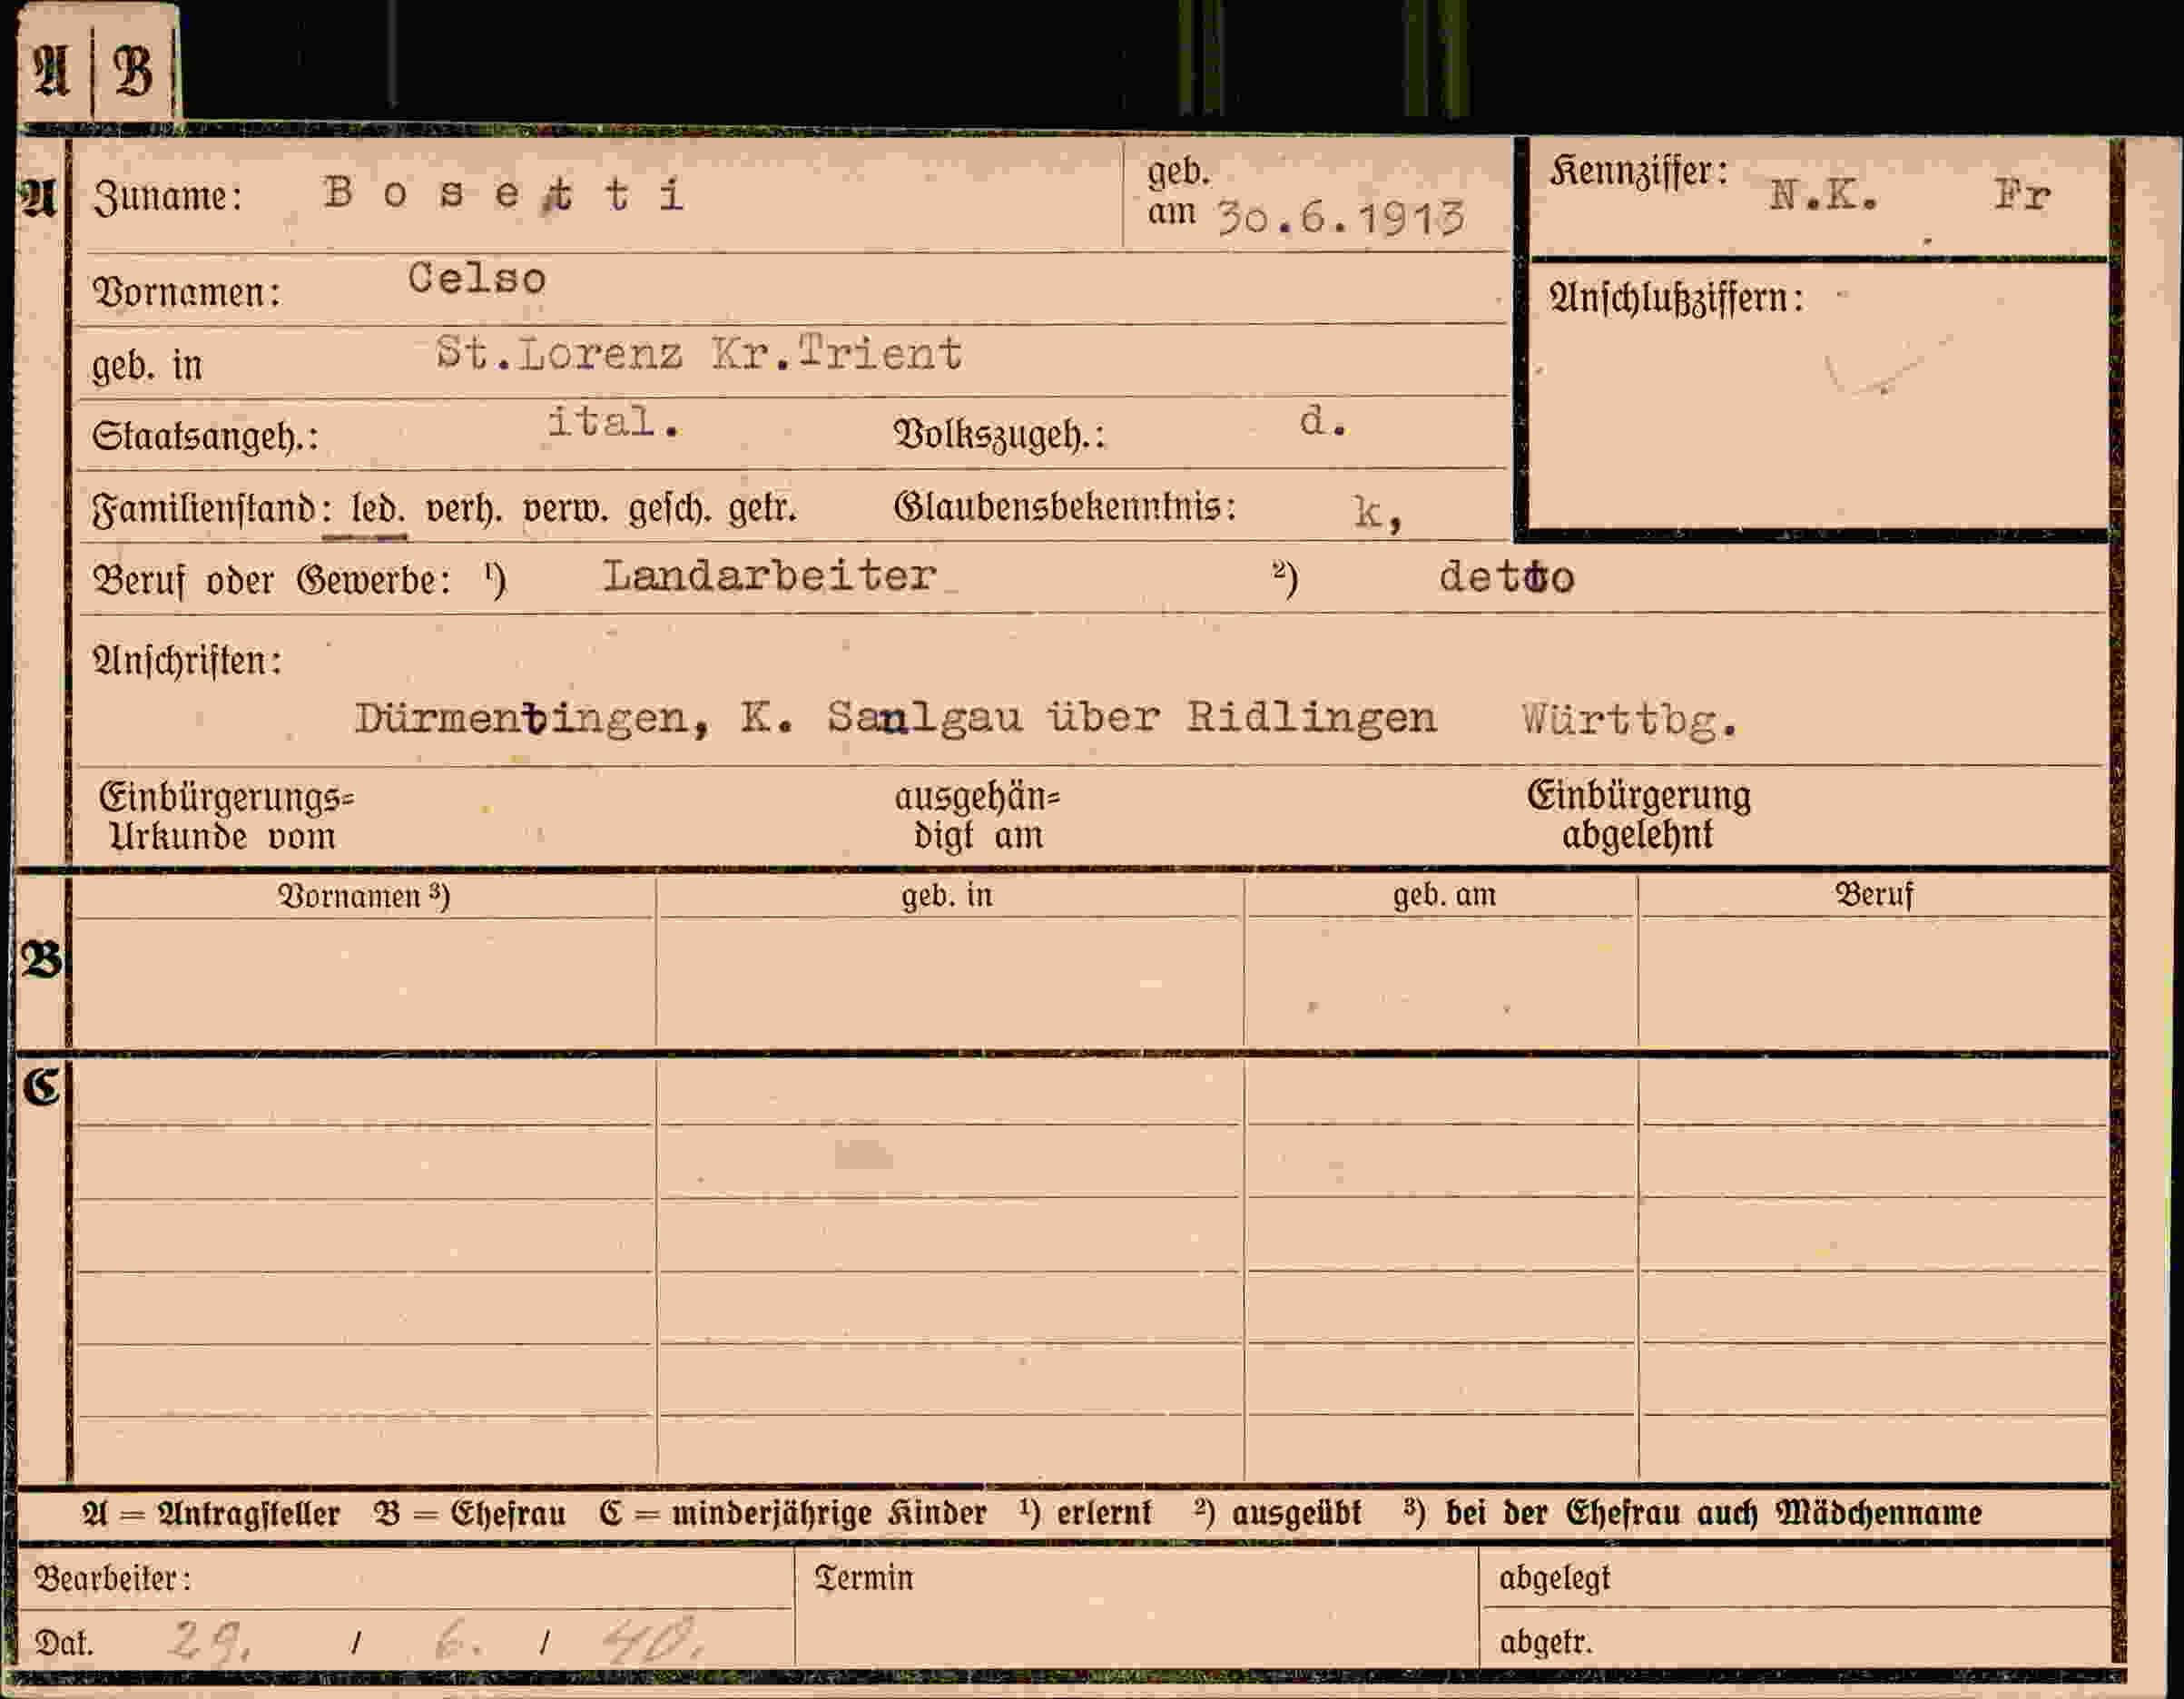 A | B
A Zuname: Bosetti geb. am 30.6.1913 Kennziffer: N.K. Fr
Vornamen: Celso
Anschlußziffern:
geb. in St.Lorenz Kr.Trient
Staatsangeh.: ital. Volkszugeh.: d.
Familienstand: led. verh. verw. gesch. getr. Glaubensbekenntnis: k,
Beruf oder Gewerbe: ¹) Landarbeiter ²) detto
Anschriften:
Dürmentingen, K. Saulgau über Ridlingen Württbg.
Einbürgerungs= ausgehän= Einbürgerung
Urkunde vom digt am abgelehnt
Vornamen ³) geb. in geb. am Beruf
B
C
A = Antragsteller B = Ehefrau C = minderjährige Kinder ¹) erlernt ²) ausgeübt ³) bei der Ehefrau auch Mädchenname
Bearbeiter: Termin abgelegt
Dat. 29. / 6. / 40. abgetr.